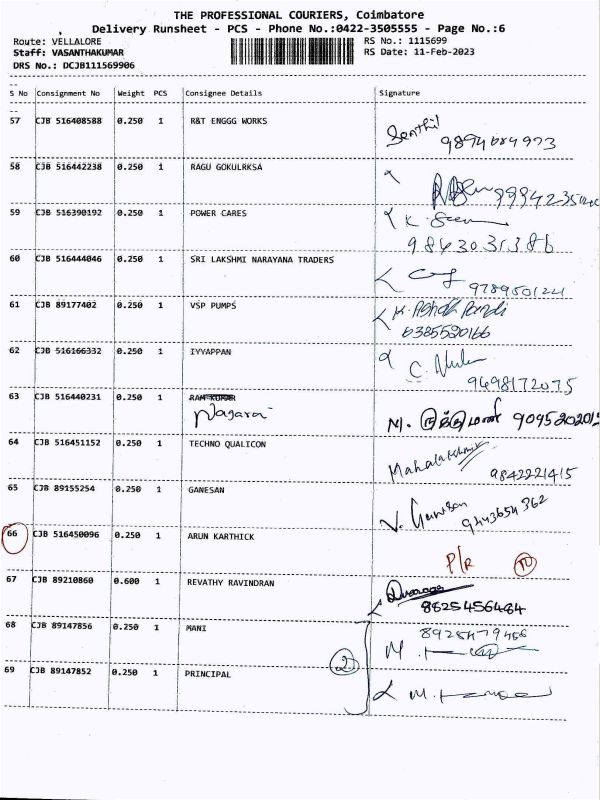 THE PROFESSIONAL COURIERS, Coimbatore
Delivery Runsheet - PCS - Phone No.:0422-3505555 - Page No.:6
Route: VELLALORE
RS No.: 1115699
Staff: VASANTHAKUMAR
RS Date: 11-Feb-2023
DRS No.: DCJB111569906
S No Consignment No Weight PCS Consignee Details Signature
57 CJB 516408588 0.250 1 R&T ENGGG WORKS Senthil
58 CJB 516442238 0.250 1 RAGU GOKULRKSA
59 CJB 516390192 0.250 1 POWER CARES K.
9843031386
60 CJB 516444046 0.250 1 SRI LAKSHMI NARAYANA TRADERS
61 CJB 89177402 0.250 1 VSP PUMPS K. Ashok Pandi
6385520166
62 CJB 516166332 0.250 1 IYYAPPAN C.
9498172075
63 CJB 516440231 0.250 1 RAM KUMAR
Nagaraj N.
64 CJB 516451152 0.250 1 TECHNO QUALICON Mahalakshmi
9842221415
65 CJB 89155254 0.250 1 GANESAN V. Ganesan
9443654362
66 CJB 516450096 0.250 1 ARUN KARTHICK P/R
67 CJB 89210860 0.600 1 REVATHY RAVINDRAN
8825456484
68 CJB 89147856 0.250 1 MANI 8925479466
M.
2
69 CJB 89147852 0.250 1 PRINCIPAL M.